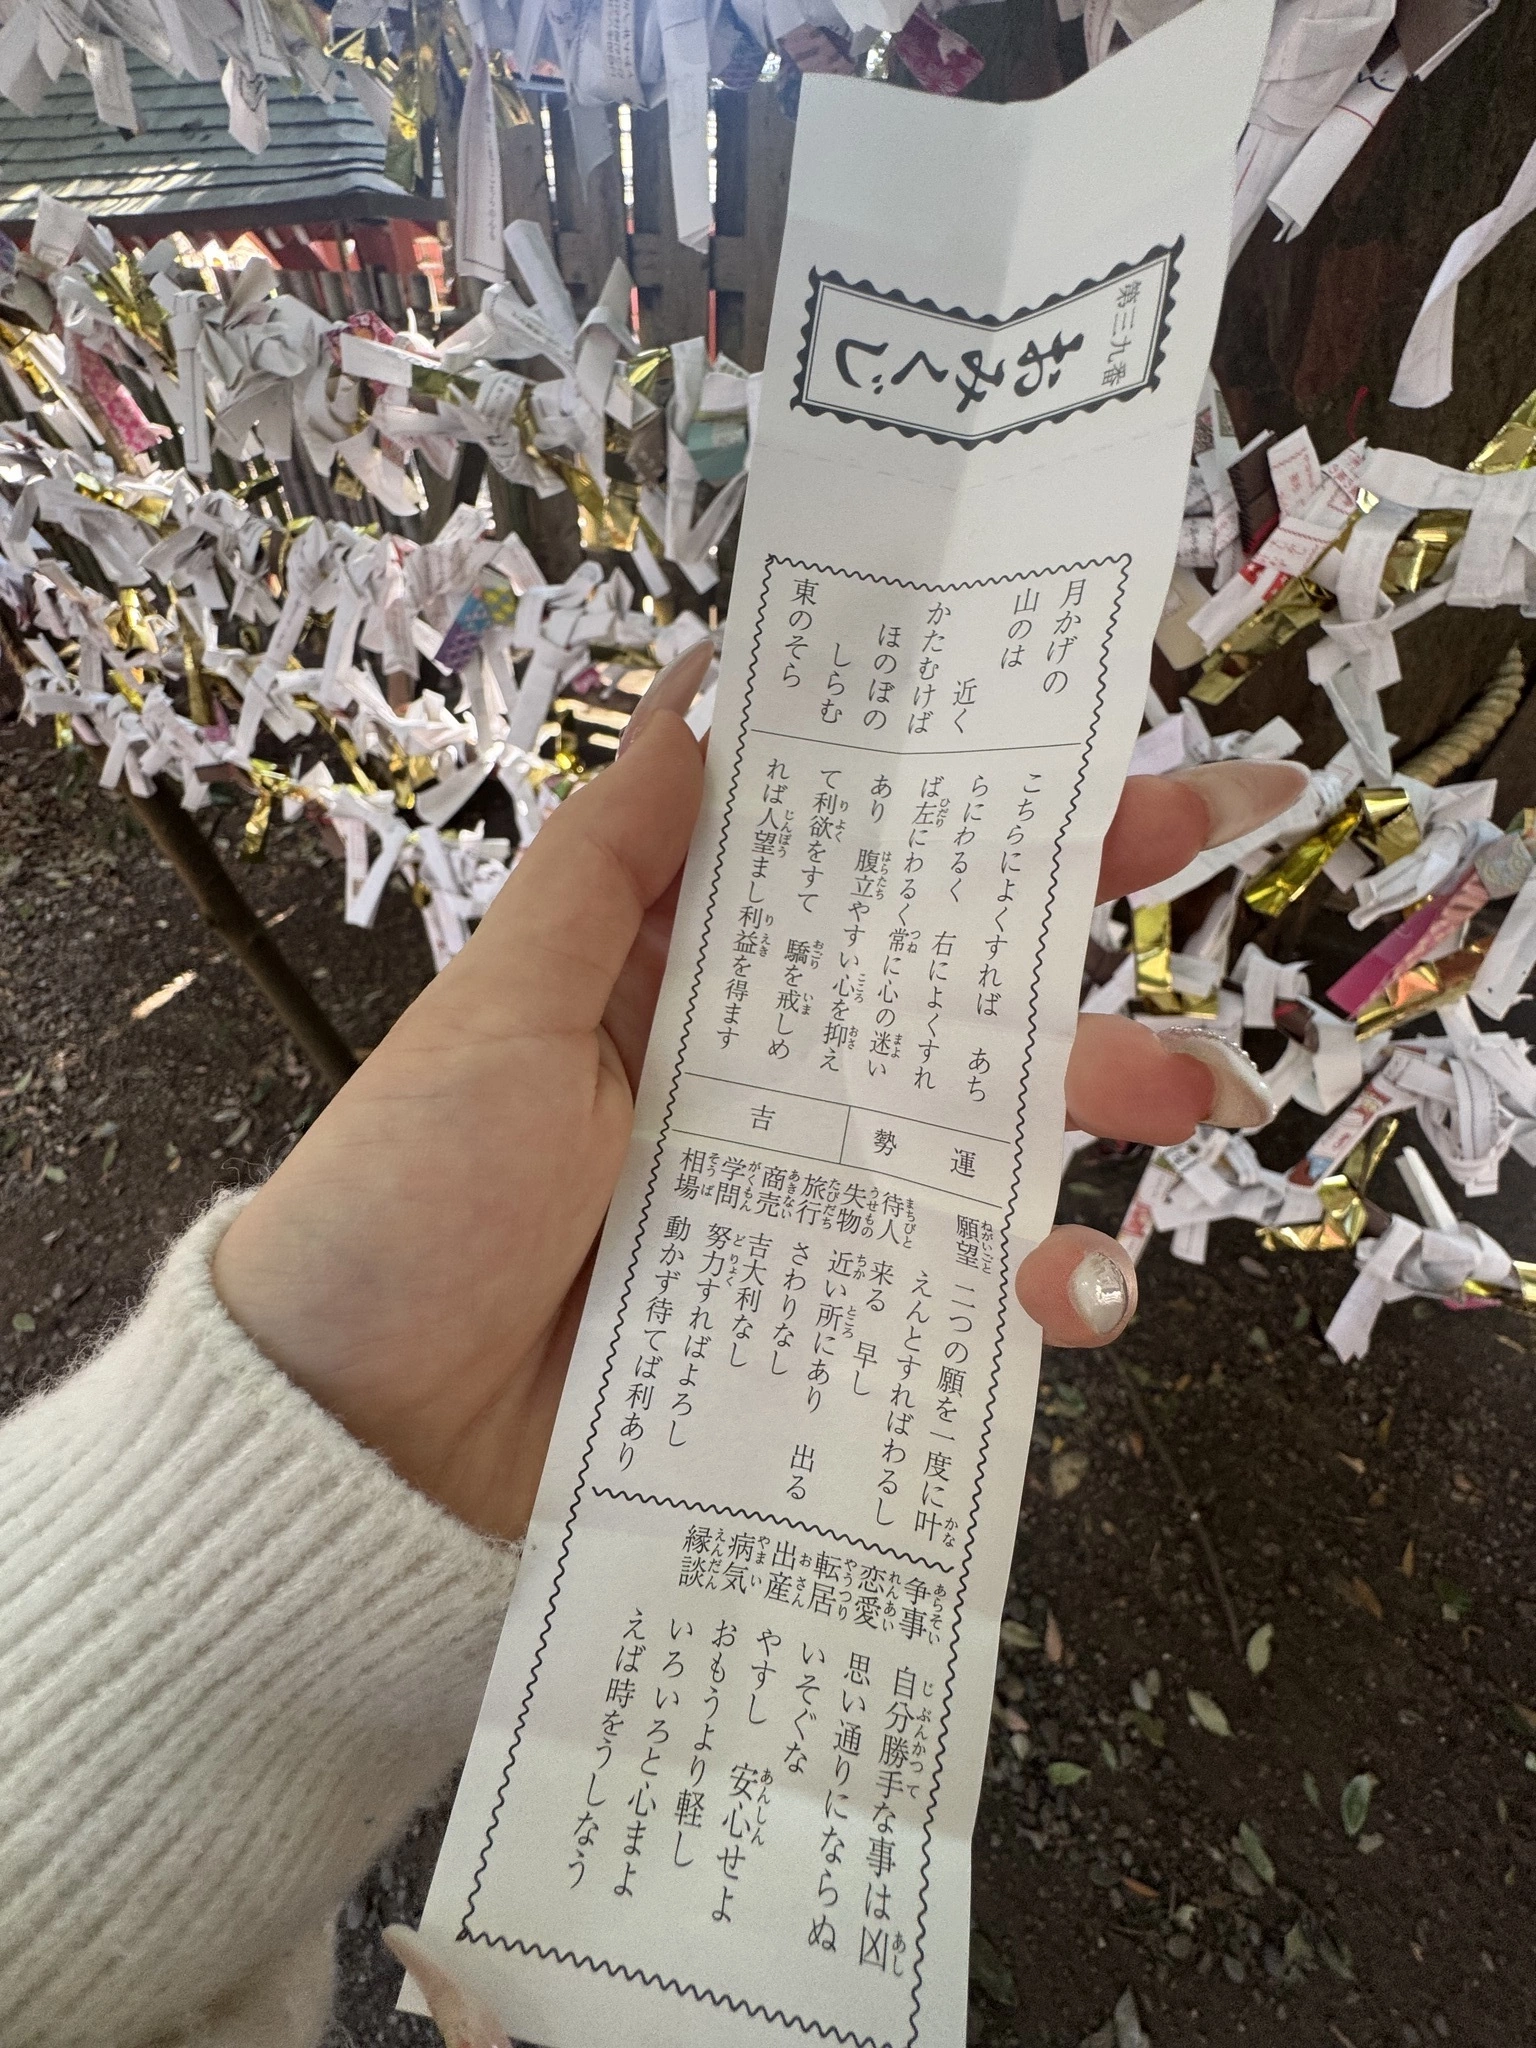 第三九番
おみくじ
月かげの
山のは
近く
かたむけば
ほのぼの
しらむ
東のそら
こちらによくすれば　あち
らにわるく　右によくすれ
ば左にわるく常に心の迷い
あり　腹立やすい心を抑え
て利欲をすて　驕を戒しめ
れば人望まし利益を得ます
運勢
吉
願望　二つの願を一度に叶
えんとすればわるし
待人　来る　早し
失物　近い所にあり　出る
旅行　さわりなし
商売　吉大利なし
学問　努力すればよろし
相場　動かず待てば利あり
争事　自分勝手な事は凶
恋愛　思い通りにならぬ
転居　いそぐな
出産　やすし　安心せよ
病気　おもうより軽し
縁談　いろいろと心まよ
えば時をうしなう